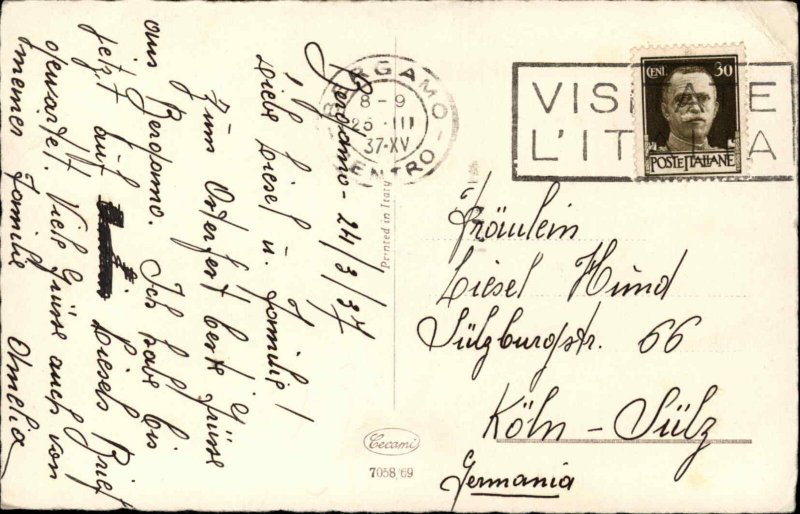 Bergamo - 24/3/37
Liebe Liesel u. Familie!
Zum Osterfest beste Grüsse
aus Bergamo. Ich habe bis
jetzt auf Liesels Brief
gewartet. Viele Grüsse auch von
meiner Familie Amelia
Printed in Italy
Cecami
7058/69
BERGAMO
CENTRO
8-9
III
37-XV
VISITATE
L'ITALIA
CENT. 30
POSTE ITALIANE
Fräulein
Liesel Hünd
Sülzburgstr. 66
Köln - Sülz
Germania